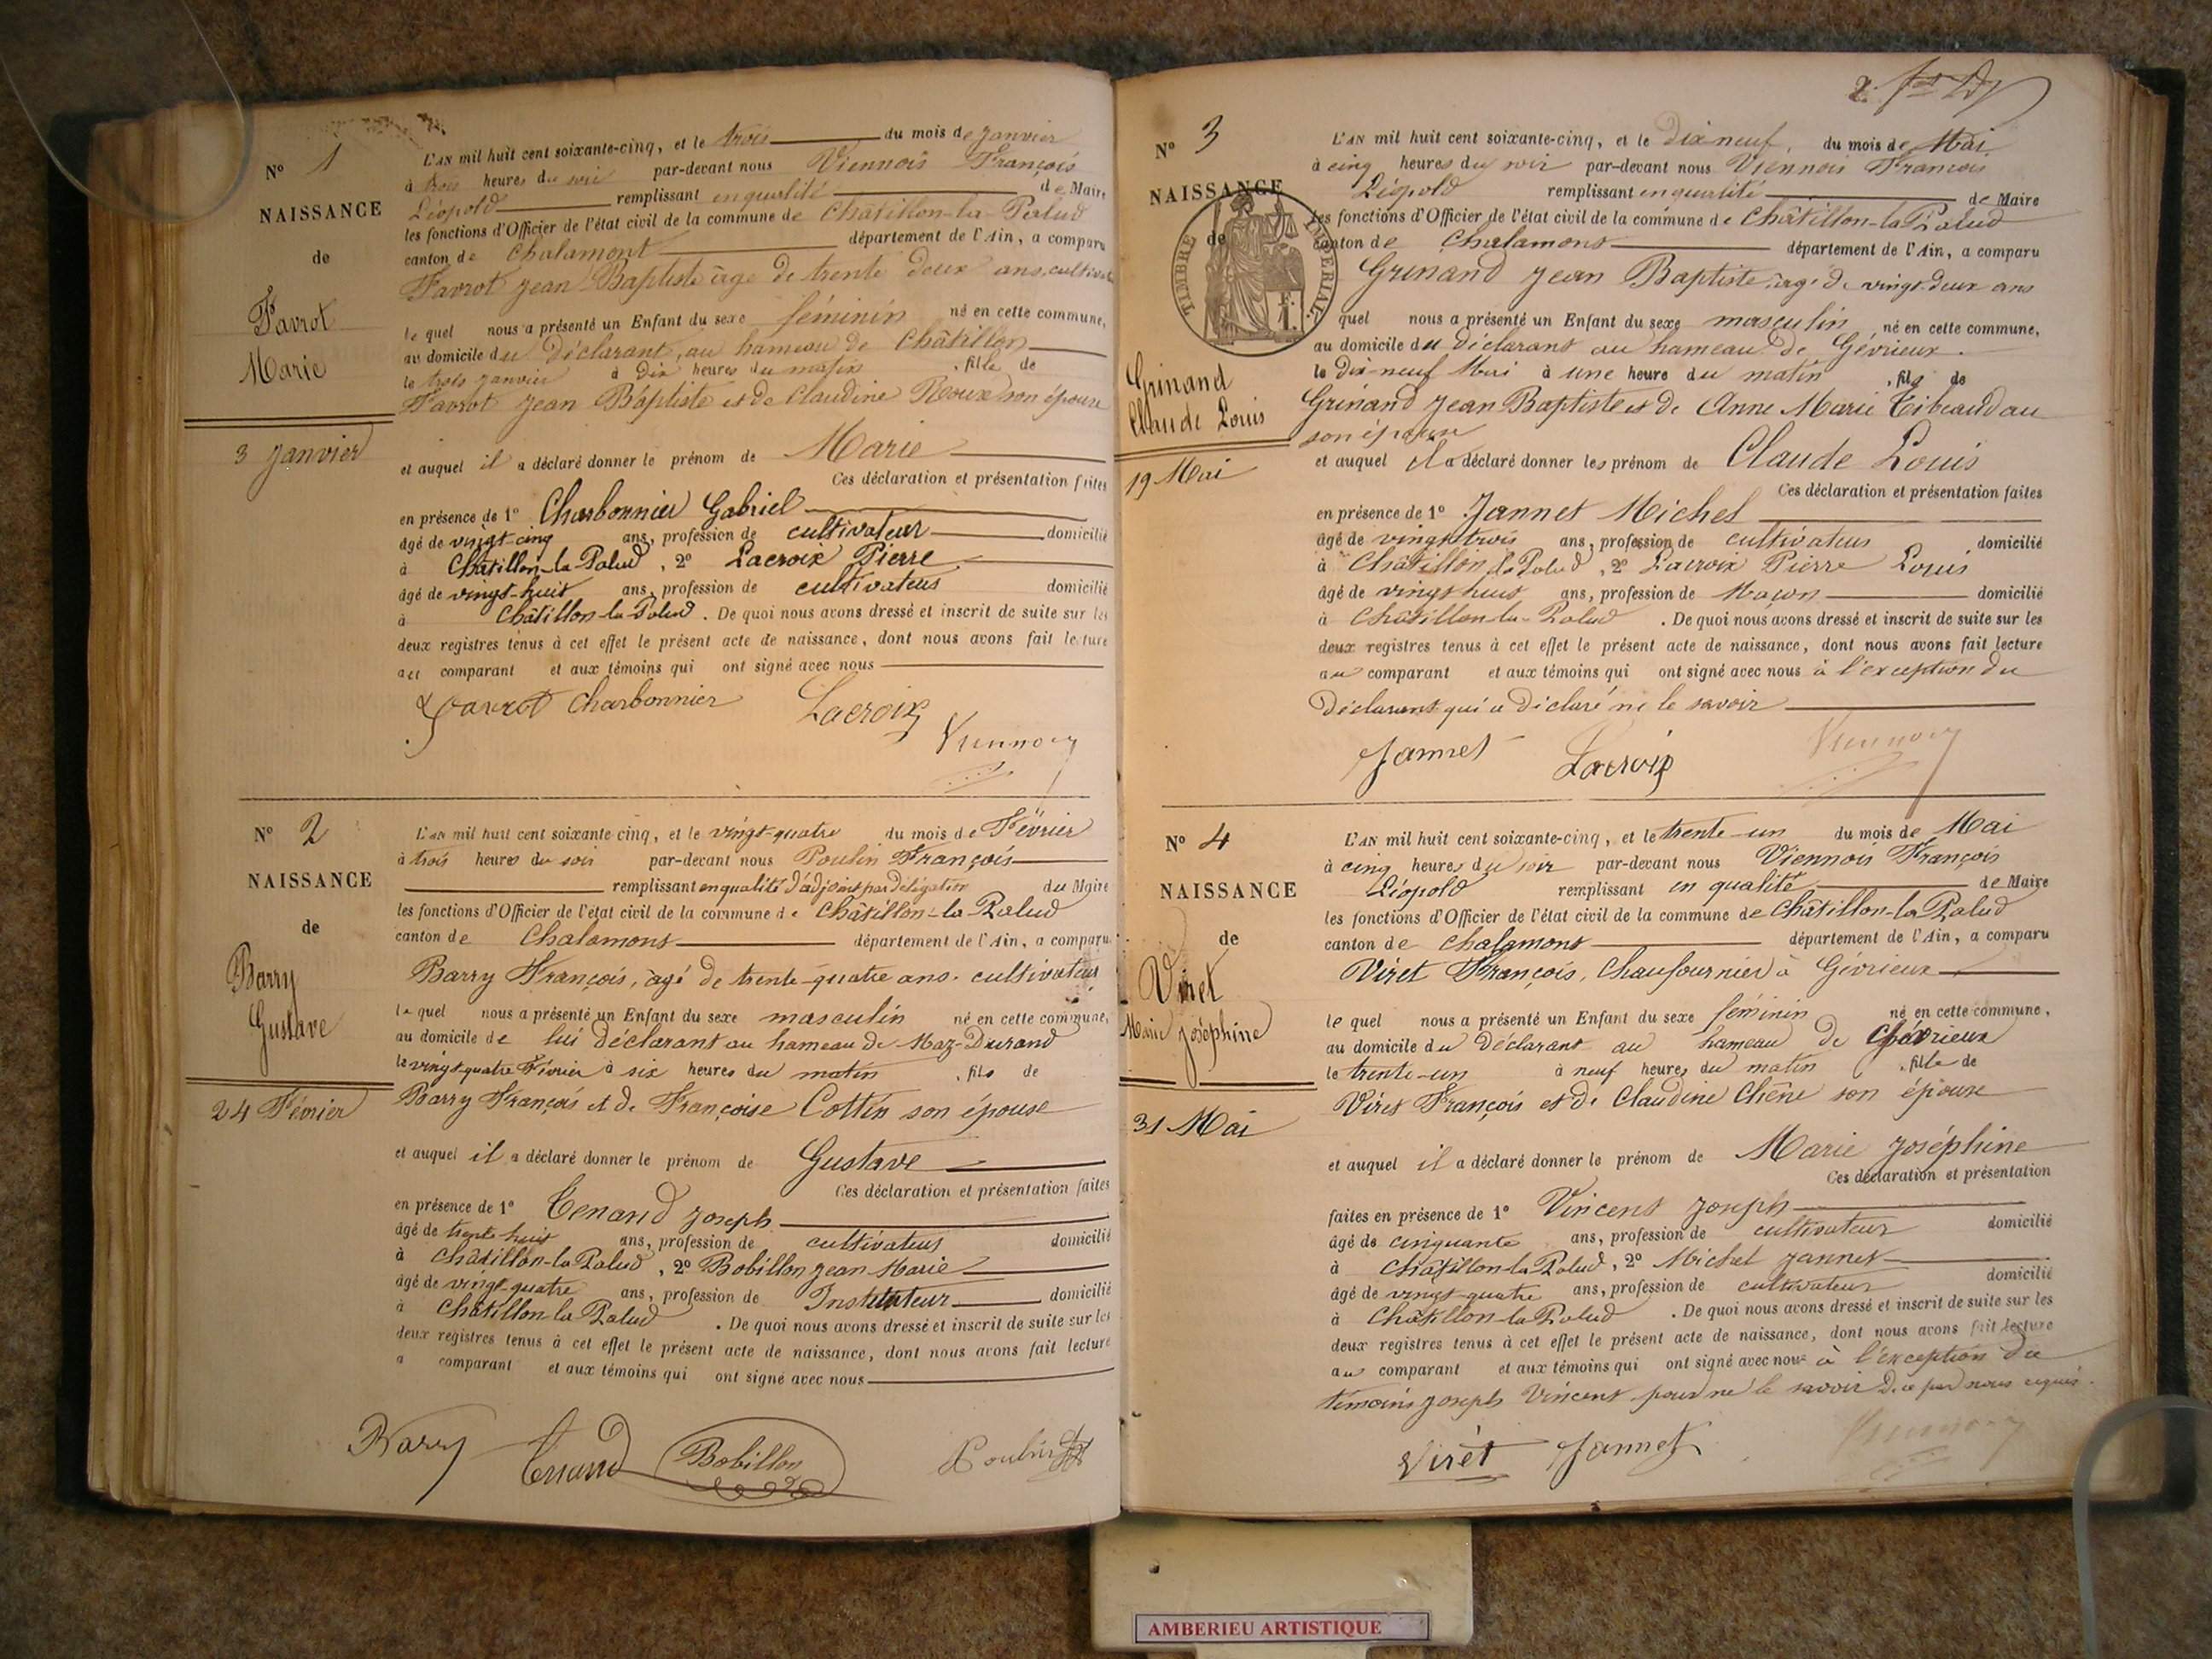 N° 1
NAISSANCE
de
Favrot
Marie
3 Janvier
L'AN mil huit cent soixante-cinq, et le trois du mois de Janvier
à trois heures du soir par-devant nous Viennois François
Léopold remplissant en qualité de Maire
les fonctions d'Officier de l'état civil de la commune de Châtillon-la-Palud
canton de Chalamont département de l'Ain, a comparu
Favrot Jean Baptiste âgé de trente deux ans, cultivateur
le quel nous a présenté un Enfant du sexe féminin né en cette commune,
au domicile du Déclarant, au hameau de Châtillon
le trois Janvier à Dix heures du matin, fille de
Favrot Jean Baptiste et de Claudine Roux son épouse
et auquel il a déclaré donner le prénom de Marie
Ces déclaration et présentation faites
en présence de 1° Charbonnier Gabriel
âgé de vingt-cinq ans, profession de cultivateur domicilié
à Châtillon-la-Palud, 2° Lacroix Pierre
âgé de vingt-huit ans, profession de cultivateur domicilié
à Châtillon-la-Palud. De quoi nous avons dressé et inscrit de suite sur les
deux registres tenus à cet effet le présent acte de naissance, dont nous avons fait lecture
au comparant et aux témoins qui ont signé avec nous
Favrot Charbonnier Lacroix
Viennois
N° 2
NAISSANCE
de
Barry
Gustave
24 Février
L'AN mil huit cent soixante-cinq, et le vingt-quatre du mois de Février
à trois heures du soir par-devant nous Poulin François
remplissant en qualité d'adjoint par délégation du Maire
les fonctions d'Officier de l'état civil de la commune de Châtillon-la-Palud
canton de Chalamont département de l'Ain, a comparu
Barry François, âgé de trente-quatre ans, cultivateur
le quel nous a présenté un Enfant du sexe masculin né en cette commune,
au domicile de lui déclarant au hameau de Maz-Durand
le vingt quatre Février à six heures du matin, fils de
Barry François et de Françoise Cottin son épouse
et auquel il a déclaré donner le prénom de Gustave
Ces déclaration et présentation faites
en présence de 1° Tenand Joseph
âgé de trente huit ans, profession de cultivateur domicilié
à Châtillon-la-Palud, 2° Bobillon Jean-Marie
âgé de vingt-quatre ans, profession de Instituteur domicilié
à Châtillon la Palud. De quoi nous avons dressé et inscrit de suite sur les
deux registres tenus à cet effet le présent acte de naissance, dont nous avons fait lecture
a comparant et aux témoins qui ont signé avec nous
Barry Tenand Bobillon Poulin
2
N° 3
NAISSANCE
de
TIMBRE IMPERIAL
Grinand
Claude Louis
19 Mai
L'AN mil huit cent soixante-cinq, et le Dix neuf, du mois de Mai
à cinq heures du soir par-devant nous Viennois François
Léopold remplissant en qualité de Maire
les fonctions d'Officier de l'état civil de la commune de Châtillon-la-Palud
canton de Chalamont département de l'Ain, a comparu
Grinand Jean Baptiste, âgé de vingt-deux ans
quel nous a présenté un Enfant du sexe masculin, né en cette commune,
au domicile du déclarant au hameau de Gévrieux.
le Dix-neuf Mai à une heure du matin, fils de
Grinand Jean Baptiste et de Anne Marie Tibeaudau
son épouse
et auquel il a déclaré donner les prénom de Claude Louis
Ces déclaration et présentation faites
en présence de 1° Jannet Michel
âgé de vingt trois ans, profession de cultivateur domicilié
à Châtillon la Palud, 2° Lacroix Pierre Louis
âgé de vingt huit ans, profession de Maçon domicilié
à Châtillon-la-Palud. De quoi nous avons dressé et inscrit de suite sur les
deux registres tenus à cet effet le présent acte de naissance, dont nous avons fait lecture
au comparant et aux témoins qui ont signé avec nous à l'exception du
Déclarant qui a déclaré ne le savoir
Jannet Lacroix Viennois
N° 4
NAISSANCE
de
Viret
Marie Joséphine
31 Mai
L'AN mil huit cent soixante-cinq, et le trente-un du mois de Mai
à cinq heures du soir par-devant nous Viennois François
Léopold remplissant en qualité de Maire
les fonctions d'Officier de l'état civil de la commune de Châtillon-la-Palud
canton de Chalamont département de l'Ain, a comparu
Viret François, Chaufournier à Gévrieux
le quel nous a présenté un Enfant du sexe féminin né en cette commune,
au domicile du Déclarant au hameau de Gévrieux
le trente-un à neuf heures du matin, fille de
Viret François et de Claudine Chêne son épouse
et auquel il a déclaré donner le prénom de Marie Joséphine
Ces déclaration et présentation
faites en présence de 1° Vincent Joseph
âgé de cinquante ans, profession de cultivateur domicilié
à Châtillon-la-Palud, 2° Michel Jannet
âgé de vingt-quatre ans, profession de cultivateur domicilié
à Châtillon-la-Palud. De quoi nous avons dressé et inscrit de suite sur les
deux registres tenus à cet effet le présent acte de naissance, dont nous avons fait lecture
au comparant et aux témoins qui ont signé avec nous à l'exception du
témoins Joseph Vincent pour ne le savoir de ce par nous requis.
Viret Jannet Viennois
AMBERIEU ARTISTIQUE